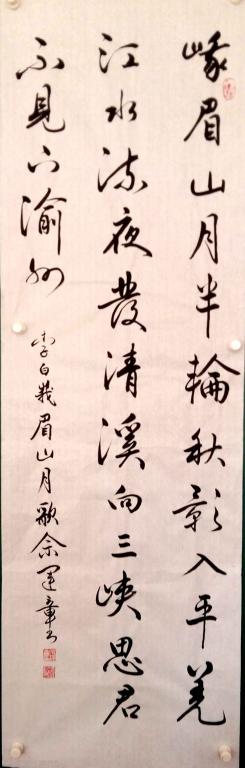 峨眉山月半輪秋影入平羌
江水流夜發清溪向三峡思君
不見下渝州
李白峩眉山月歌佘運章书